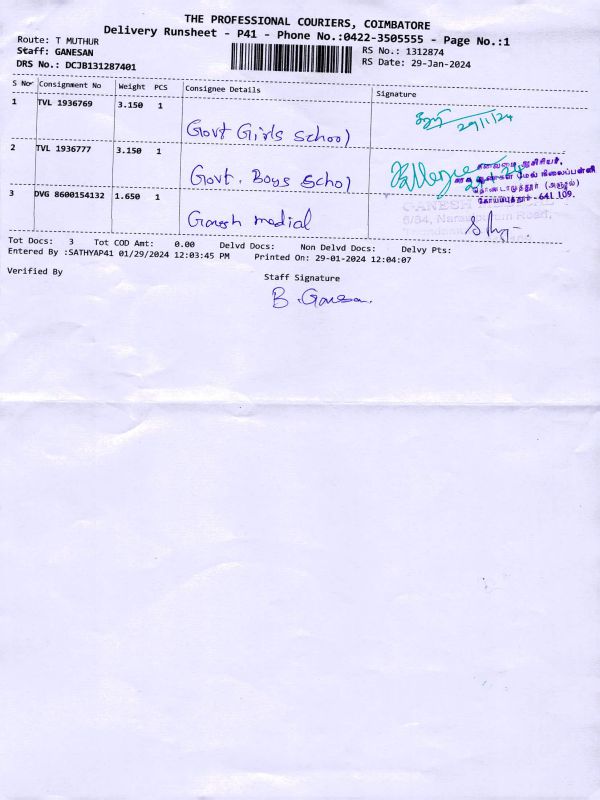 THE PROFESSIONAL COURIERS, COIMBATORE
Delivery Runsheet - P41 - Phone No.:0422-3505555 - Page No.:1
Route: T MUTHUR
RS No.: 1312874
Staff: GANESAN
RS Date: 29-Jan-2024
DRS No.: DCJB131287401
S No Consignment No Weight PCS Consignee Details Signature
1 TVL 1936769 3.150 1
Govt Girls School
29/1/24
2 TVL 1936777 3.150 1
Govt. Boys School
தலைமை ஆசிரியர்,
மேல்நிலைப்பள்ளி
தொண்டாமுத்தூர் (அஞ்சல்)
கோயம்புத்தூர் - 641 109.
3 DVG 8600154132 1.650 1
Ganesh medial
GANESH
Road,
Tot Docs: 3 Tot COD Amt: 0.00 Delvd Docs: Non Delvd Docs: Delvy Pts:
Entered By :SATHYAP41 01/29/2024 12:03:45 PM Printed On: 29-01-2024 12:04:07
Verified By
Staff Signature
B. Ganesan.